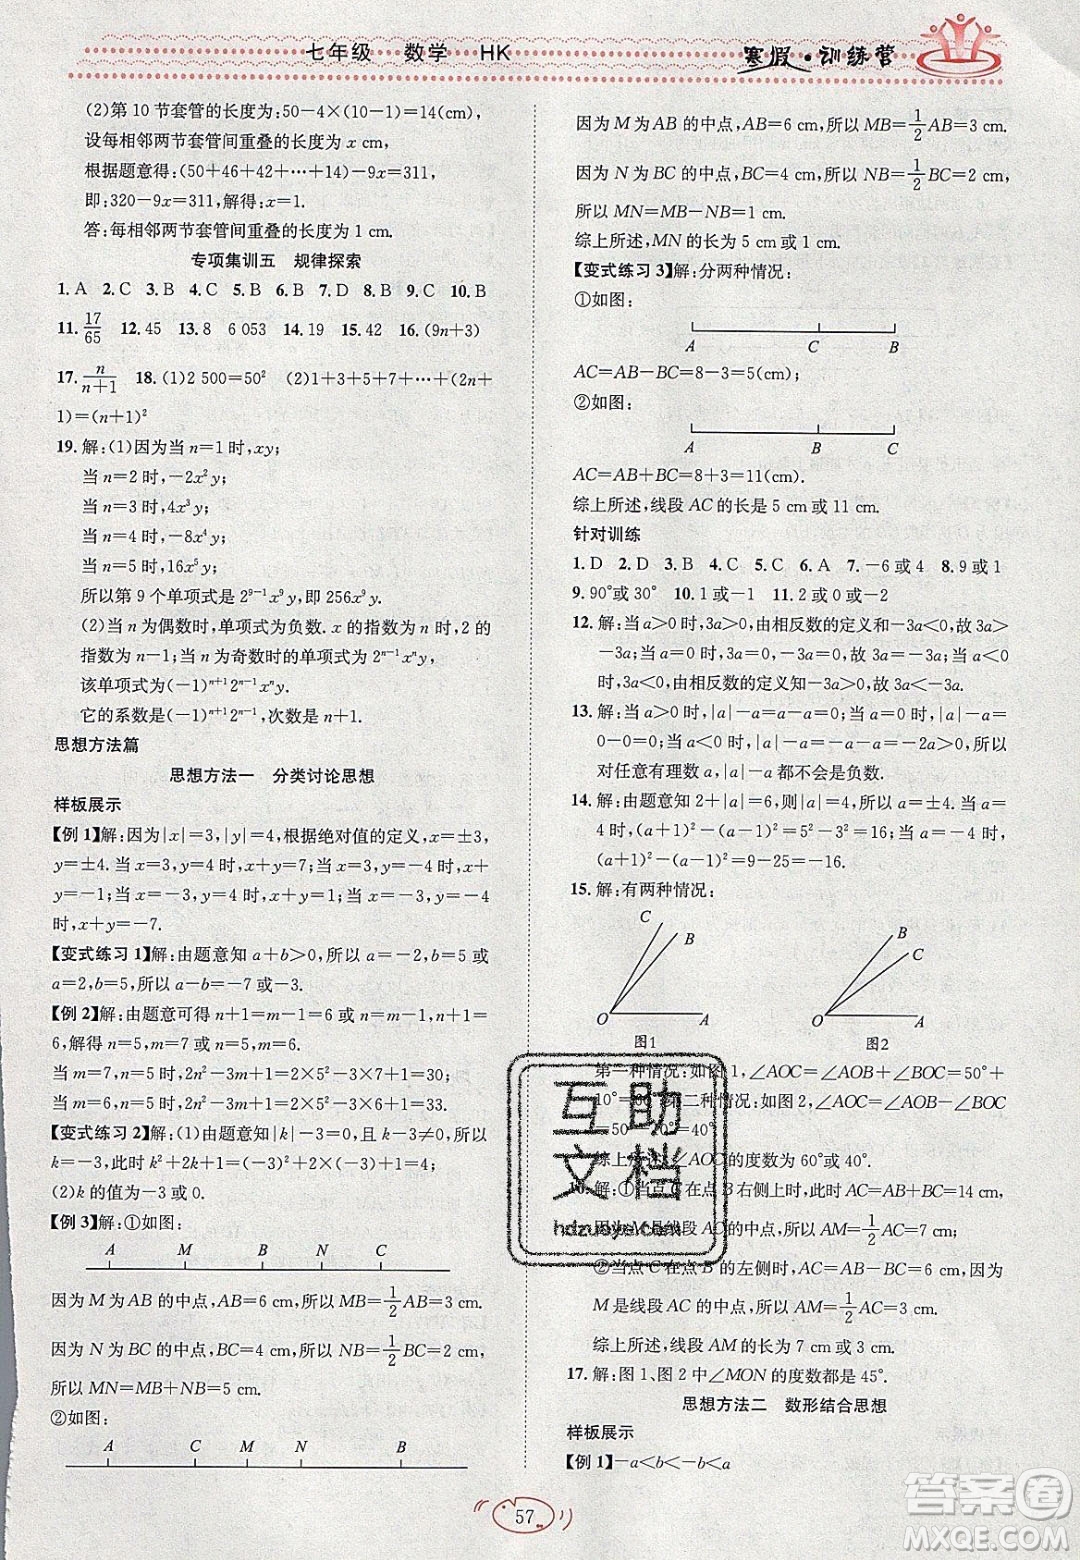 七年级 数学 HK
寒假·训练营
(2)第 10 节套管的长度为:50-4×(10-1)=14(cm).
设每相邻两节套管间重叠的长度为 x cm,
根据题意得:(50+46+42+…+14)-9x=311,
即:320-9x=311,解得:x=1.
答:每相邻两节套管间重叠的长度为 1 cm.
专项集训五 规律探索
1. A 2. C 3. B 4. B 5. B 6. B 7. B 8. C 9. C 10. B
11. 17/65 12. 45 13. 8 6 053 14. 19 15. 42 16. (9n+3)
17. n/(n+1) 18. (1)2 500=50² (2)1+3+5+7+9+…+(2n+
1)=(n+1)²
19. 解:(1)因为当 n=1 时,xy;
当 n=2 时,-2x²y;
当 n=3 时,4x³y;
当 n=4 时,-8x⁴y;
当 n=5 时,16x⁵y;
所以第 9 个单项式是 2⁹⁻¹x⁹y,即 256x⁹y.
(2)当 n 为偶数时,单项式为负数. x 的指数为 n 时,2 的
指数为 n-1;当 n 为奇数时,单项式为正数 2ⁿ⁻¹xⁿy,
该单项式为(-1)ⁿ⁺¹2ⁿ⁻¹xⁿy.
它的系数是(-1)ⁿ⁺¹2ⁿ⁻¹,次数是 n+1.
思想方法篇
思想方法一 分类讨论思想
样板展示
【例 1】解:因为|x|=3,|y|=4,根据绝对值的定义,x=±3,
y=±4. 当 x=3,y=4 时,x+y=7;当 x=3,y=-4 时,x+
y=-1;当 x=-3,y=4 时,x+y=1;当 x=-3,y=-4
时,x+y=-7.
【变式练习 1】解:由题意知 a+b>0,所以 a=5,b=2 或
a=2,b=5,所以 b-a=-7 或-3.
【例 2】解:由题意可得 n+1=m-1=6 或 n+1=m-1=
6,解得 n=5,m=7 或 n=5,m=6.
当 m=7,n=5 时,2n²-3m+1=2×5²-3×7+1=30.
当 m=6,n=5 时,2n²-3m+1=2×5²-3×6+1=33.
【变式练习 2】解:(1)由题意得|k|-3=0,且 k-3≠0,所以
k=-3,此时 k²+2k+1=(-3)²+2×(-3)+1=4.
(2)k 的值为-3 或 0.
【例 3】解:①如图:
A M B N C
因为 M 为 AB 的中点,AB=6 cm,所以 MB=1/2AB=3 cm.
因为 N 为 BC 的中点,BC=4 cm,所以 NB=1/2BC=2 cm,
所以 MN=MB+NB=5 cm.
②如图:
A M C N B
因为 M 为 AB 的中点,AB=6 cm,所以 MB=1/2AB=3 cm.
因为 N 为 BC 的中点,BC=4 cm,所以 NB=1/2BC=2 cm,
所以 MN=MB-NB=1 cm.
综上所述,MN 的长为 5 cm 或 1 cm.
【变式练习 3】解:分两种情况:
①如图:
A C B
AC=AB-BC=8-3=5(cm);
②如图:
A B C
AC=AB+BC=8+3=11(cm).
综上所述,线段 AC 的长是 5 cm 或 11 cm.
针对训练
1. D 2. D 3. B 4. C 5. C 6. A 7. -6 或 4 8. 9 或 1
9. 90°或 30° 10. 1 或-1 11. 2 或-2 或 0
12. 解:当 a>0 时,3a>0,由相反数的定义和-3a<0,故 3a>
-3a;当 a<0 时,3a<0,由相反数的定义知-3a>0,故
3a<-3a.
13. 解:当 a>0 时,|a|-a=a-a=0;当 a=0 时,|a|-a=
0-0=0;当 a<0 时,|a|-a=-a-a=-2a>0.
对任意有理数 a,|a|-a 都不会是负数.
14. 解:由题意知 2+|a|=6,则|a|=4,所以 a=±4. 当 a=4
时,(a+1)²-(a-1)²=5²-3²=16;当 a=-4 时,
(a+1)²-(a-1)²=9-25=-16.
15. 解:有两种情况:
C B O A 图1
B C O A 图2
第一种情况:如图 1,∠AOC=∠AOB+∠BOC=50°+
10°=60°. 第二种情况:如图 2,∠AOC=∠AOB-∠BOC
=50°-10°=40°.
综上所述,∠AOC 的度数为 60°或 40°.
16. 解:①当点 C 在点 B 右侧上时,此时 AC=AB+BC=14 cm,
因为 M 是线段 AC 的中点,所以 AM=1/2AC=7 cm;
②当点 C 在点 B 的左侧时,AC=AB-BC=6 cm,因为
M 是线段 AC 的中点,所以 AM=1/2AC=3 cm.
综上所述,线段 AM 的长为 7 cm 或 3 cm.
17. 解:图 1、图 2 中∠MON 的度数都是 45°.
思想方法二 数形结合思想
样板展示
【例 1】-a<b<-b<a
57
互助文档
hdzuoye.com
答案圈
MXQE.COM